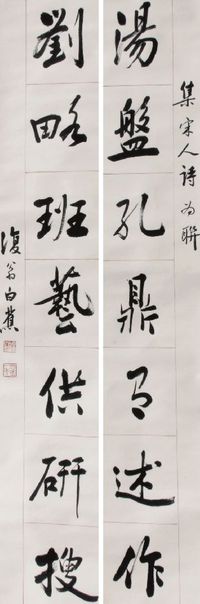 集宋人詩為聯
湯盤孔鼎有述作
劉略班藝供研搜
復翁白蕉